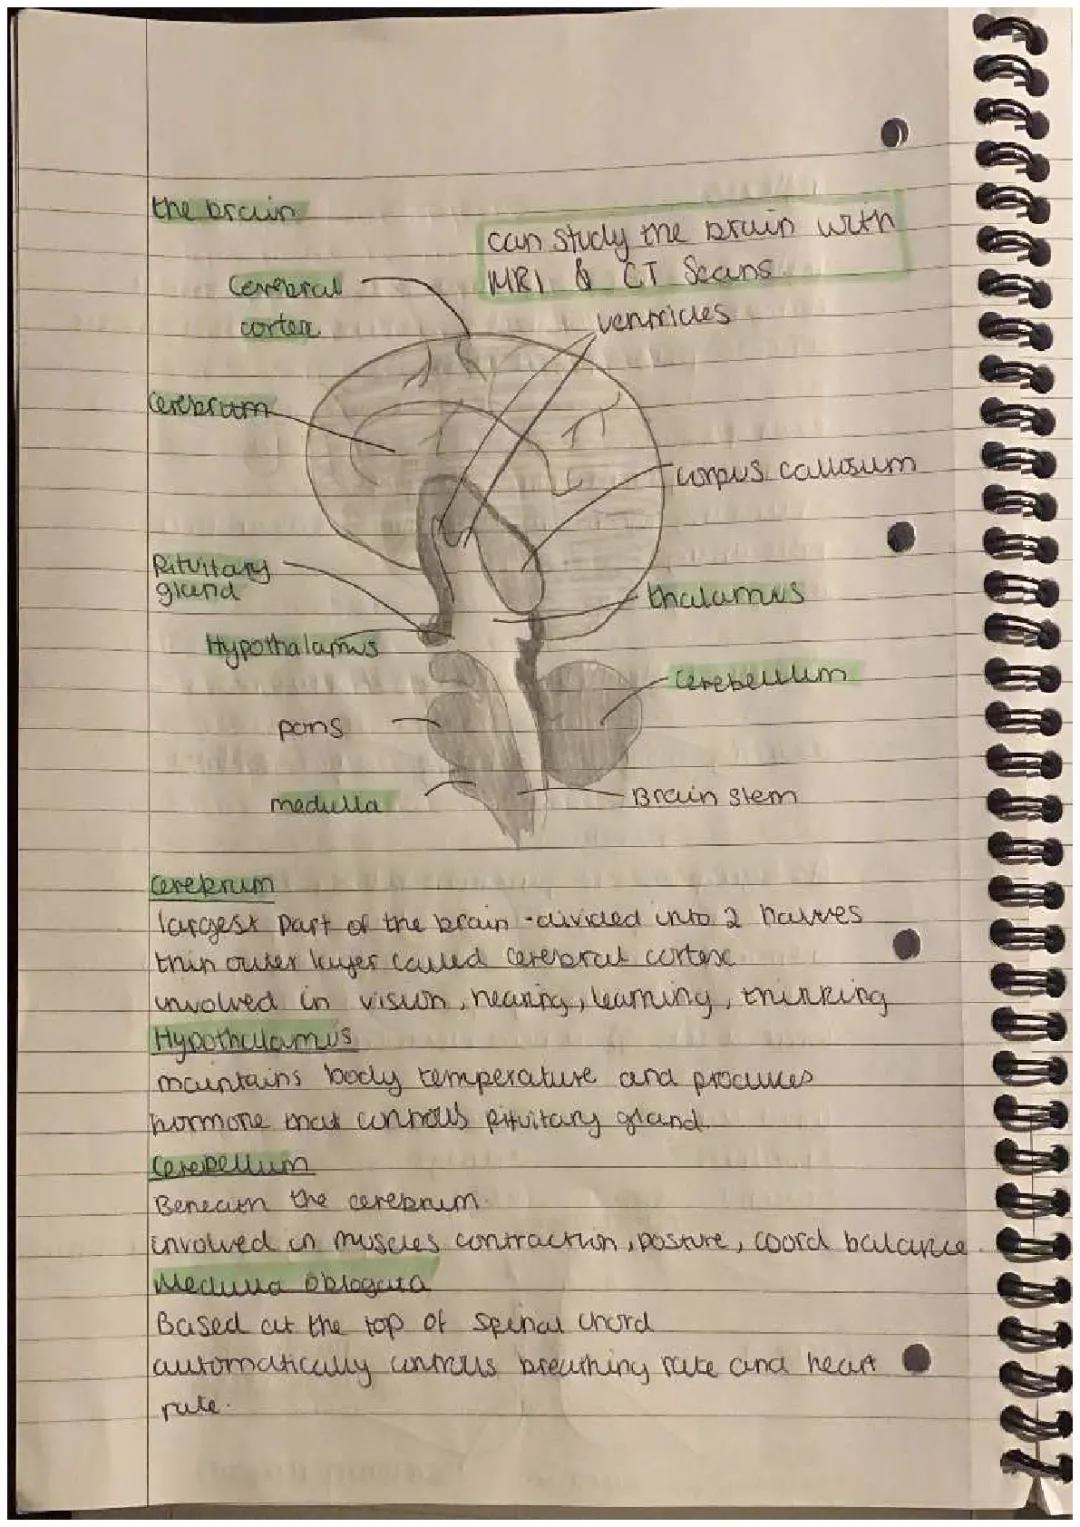 the brain
can study the brain with
MRI & CT Scans
Cerebral
cortex
ventricles
Cerebrum
corpus callosum
Pituitary
gland
thalamus
Hypothalamus
Cerebellum
pons
medulla
Brain stem
Cerebrum
largest part of the brain - divided into 2 halves
thin outer layer called cerebral cortex
involved in vision, hearing, learning, thinking
Hypothalamus
maintains body temperature and produces
hormone that controls pituitary gland.
Cerebellum
Beneath the cerebrum.
involved in muscles contraction, posture, coord balance.
Medulla oblogata
Based at the top of spinal chord
automatically controls breathing rate and heart
rate.